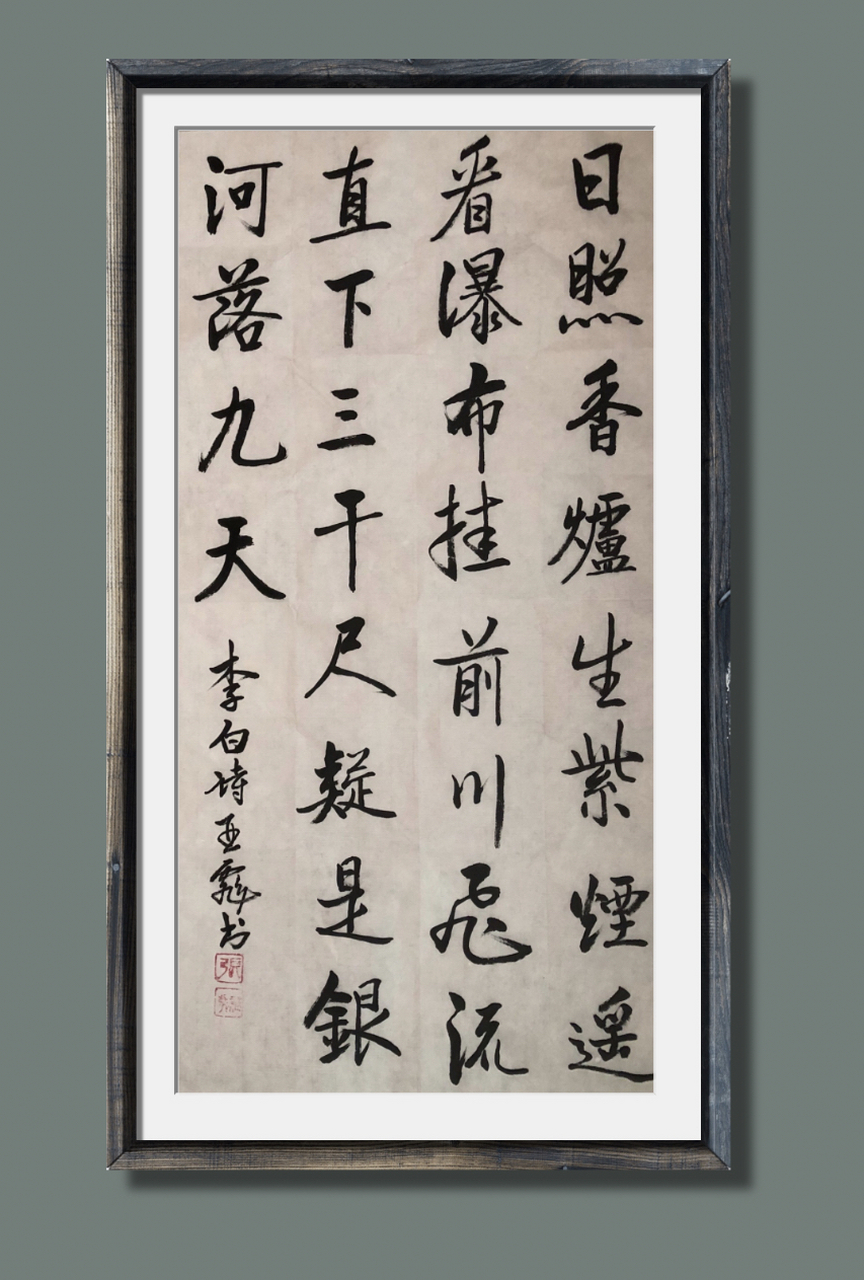 日照香爐生紫煙遥
看瀑布挂前川飛流
直下三千尺疑是銀
河落九天
李白诗亚书
張